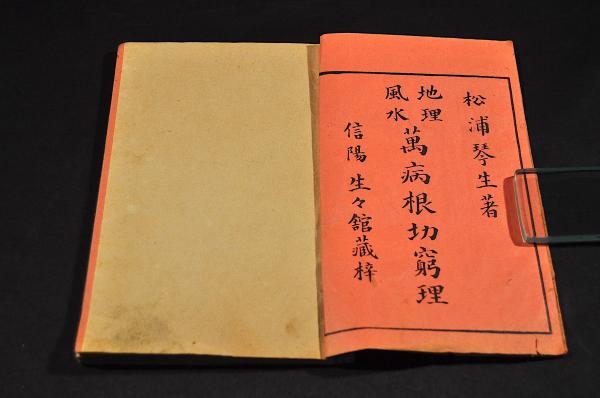 松浦琴生著
地理
風水
萬病根切窮理
信陽 生々舘藏梓